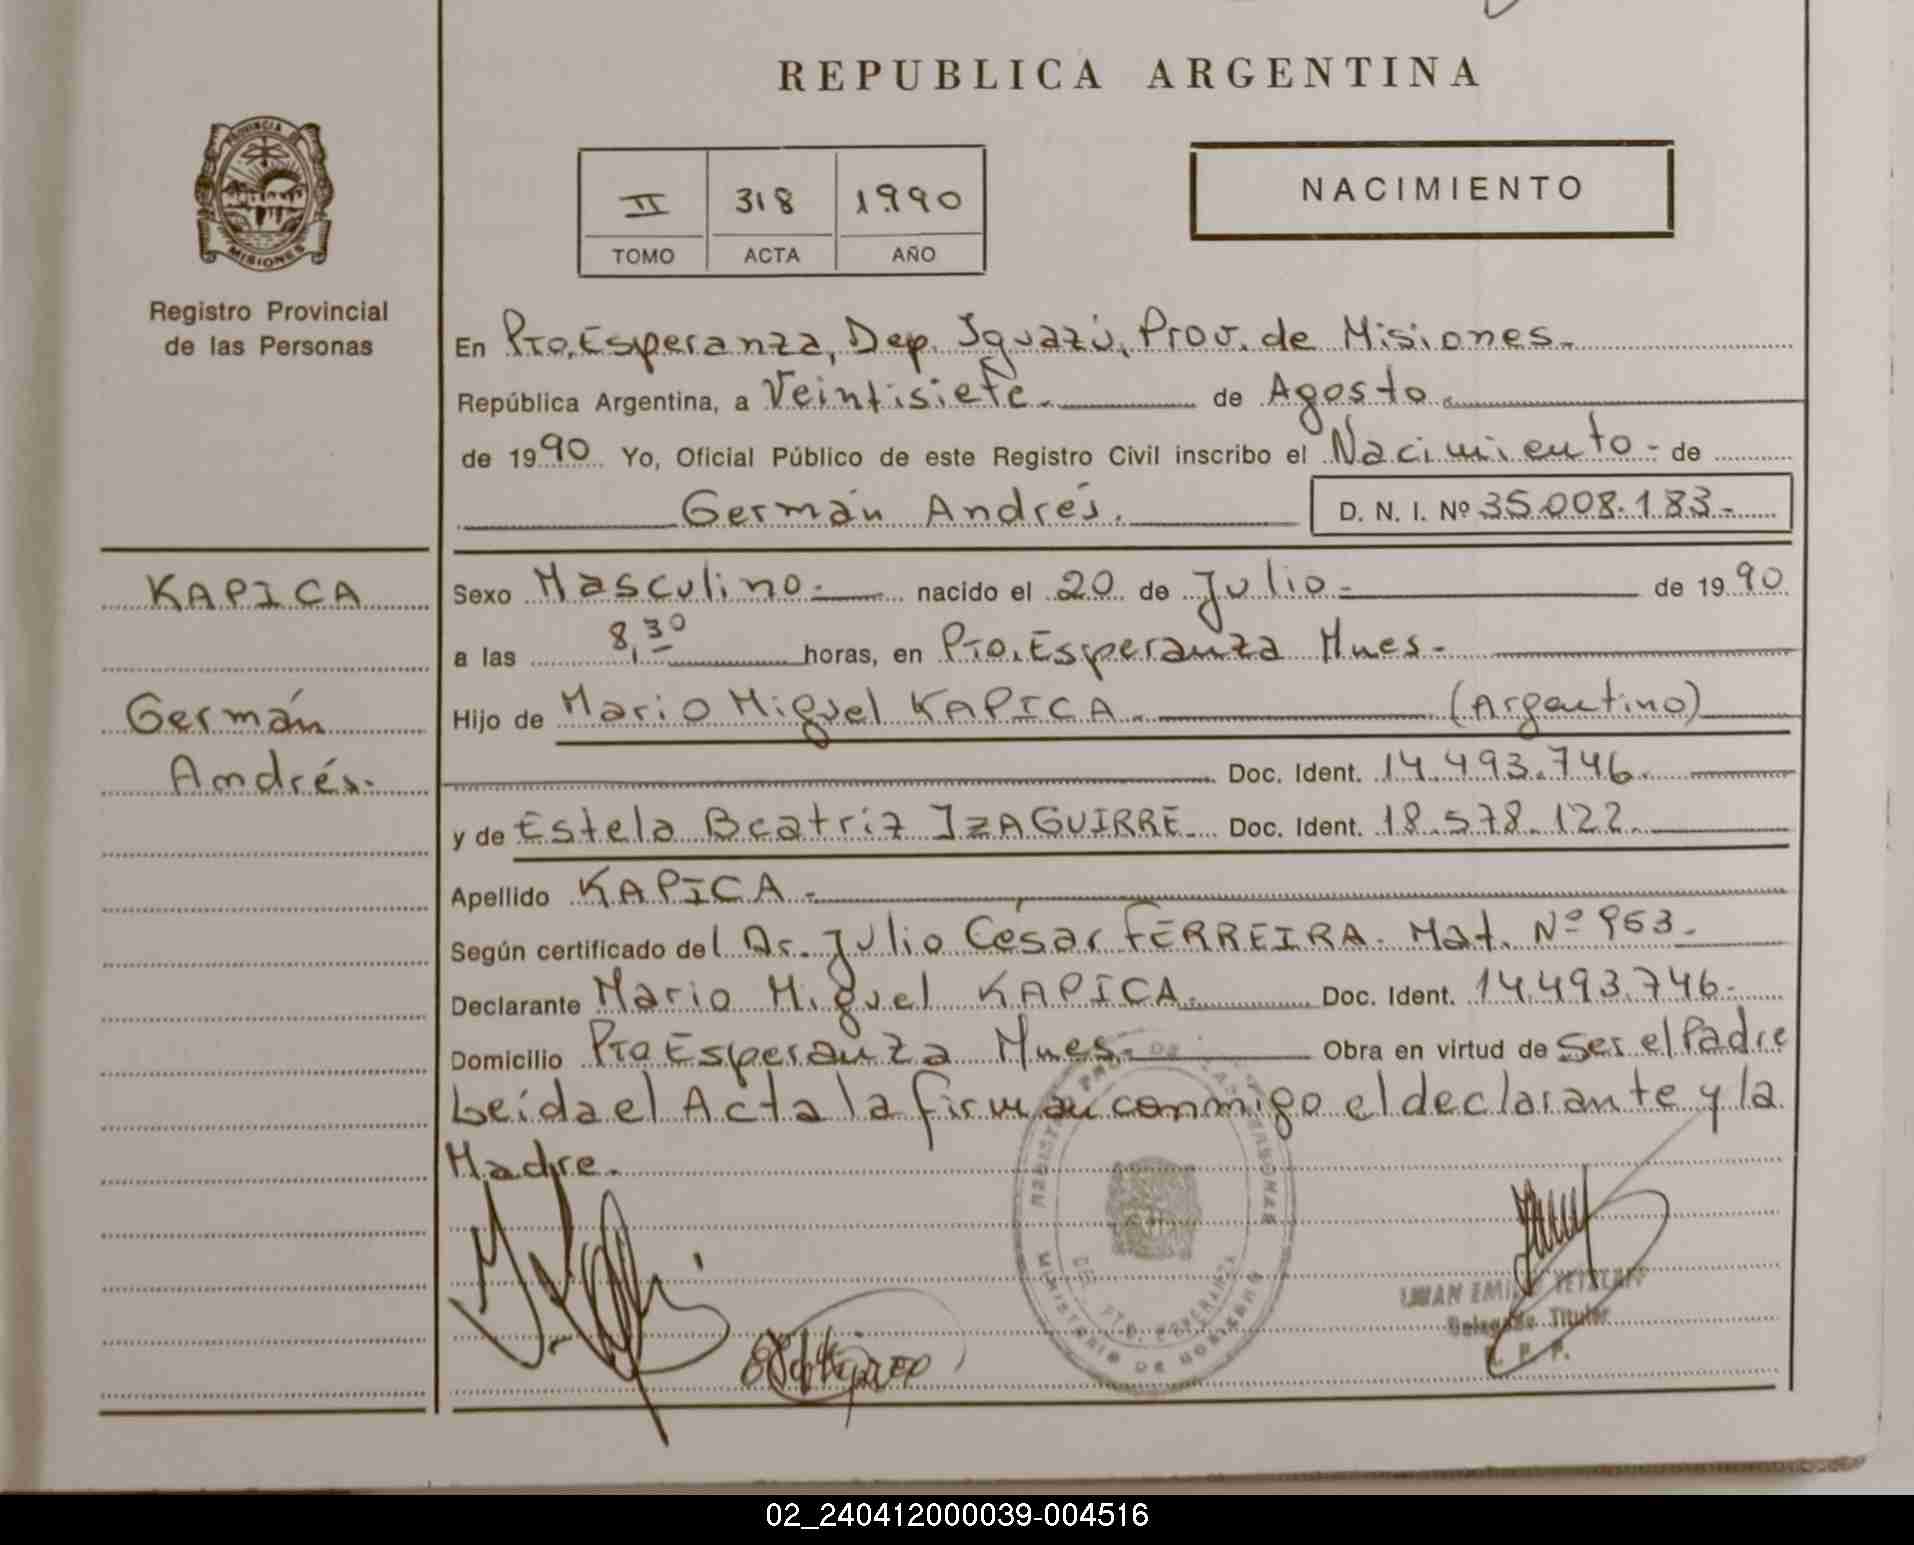 REPUBLICA ARGENTINA
PROVINCIA DE
MISIONES
Registro Provincial
de las Personas
II 318 1990
TOMO ACTA AÑO
NACIMIENTO
En Pto. Esperanza, Dep. Iguazú, Prov. de Misiones.
República Argentina, a Veintisiete. de Agosto.
de 1990 Yo, Oficial Público de este Registro Civil inscribo el Nacimiento - de
Germán Andrés. D. N. I. Nº 35.008.183.-
KAPICA
Germán
Andrés.
Sexo Masculino.- nacido el 20 de Julio.- de 1990
a las 8,30 horas, en Pto. Esperanza Mnes.-
Hijo de Mario Miguel KAPICA. (Argentino)
Doc. Ident. 14.493.746.
y de Estela Beatriz IzAGUIRRE. Doc. Ident. 18.578.122.
Apellido KAPICA.-
Según certificado del Dr. Julio César FERREIRA. Mat. Nº 953.-
Declarante Mario Miguel KAPICA. Doc. Ident. 14.493.746.-
Domicilio Pto Esperanza Mnes.- Obra en virtud de Ser el Padre
Leída el Acta la firman conmigo el declarante y la
Madre.
DE LAS PERSONAS
MINISTERIO DE GOBIERNO
DEL. PTO. ESPERANZA
Delegado Titular
R. P. P.
02_240412000039-004516